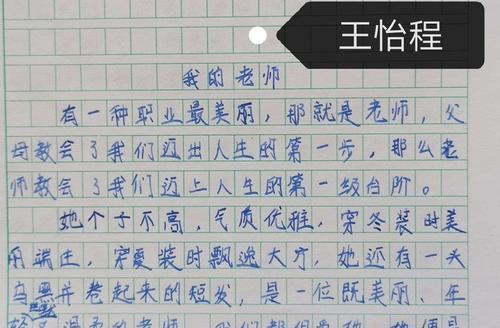 王怡程
我的老师
有一种职业最美丽，那就是老师，父
母教会了我们迈出人生的第一步，那么老
师教会了我们迈上人生的第一级台阶。
她个子不高，气质优雅，穿冬装时美
丽端庄，穿夏装时飘逸大方，她还有一头
乌黑并卷起来的短发，是一位既美丽、年
轻又温柔的老师。我们都很爱她，她便是